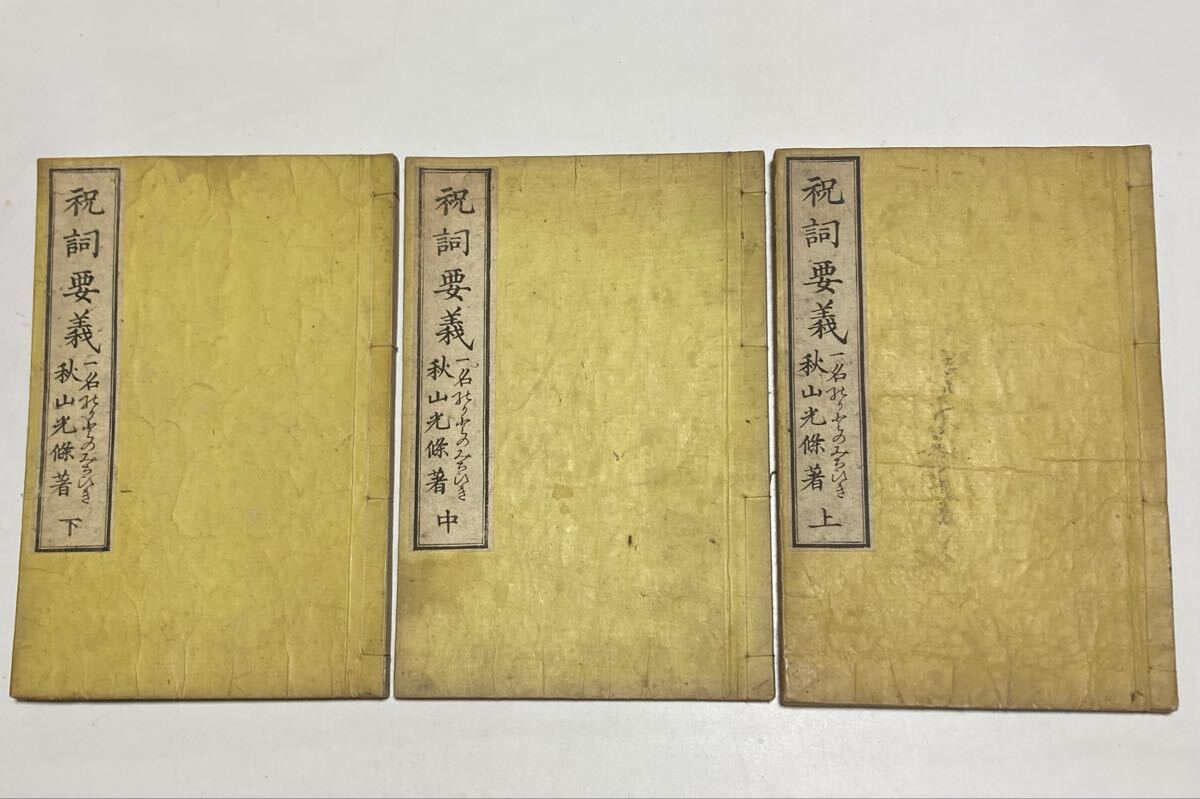 祝詞要義
一名のりとのみちひき
秋山光條著
上
祝詞要義
一名のりとのみちひき
秋山光條著
中
祝詞要義
一名のりとのみちひき
秋山光條著
下